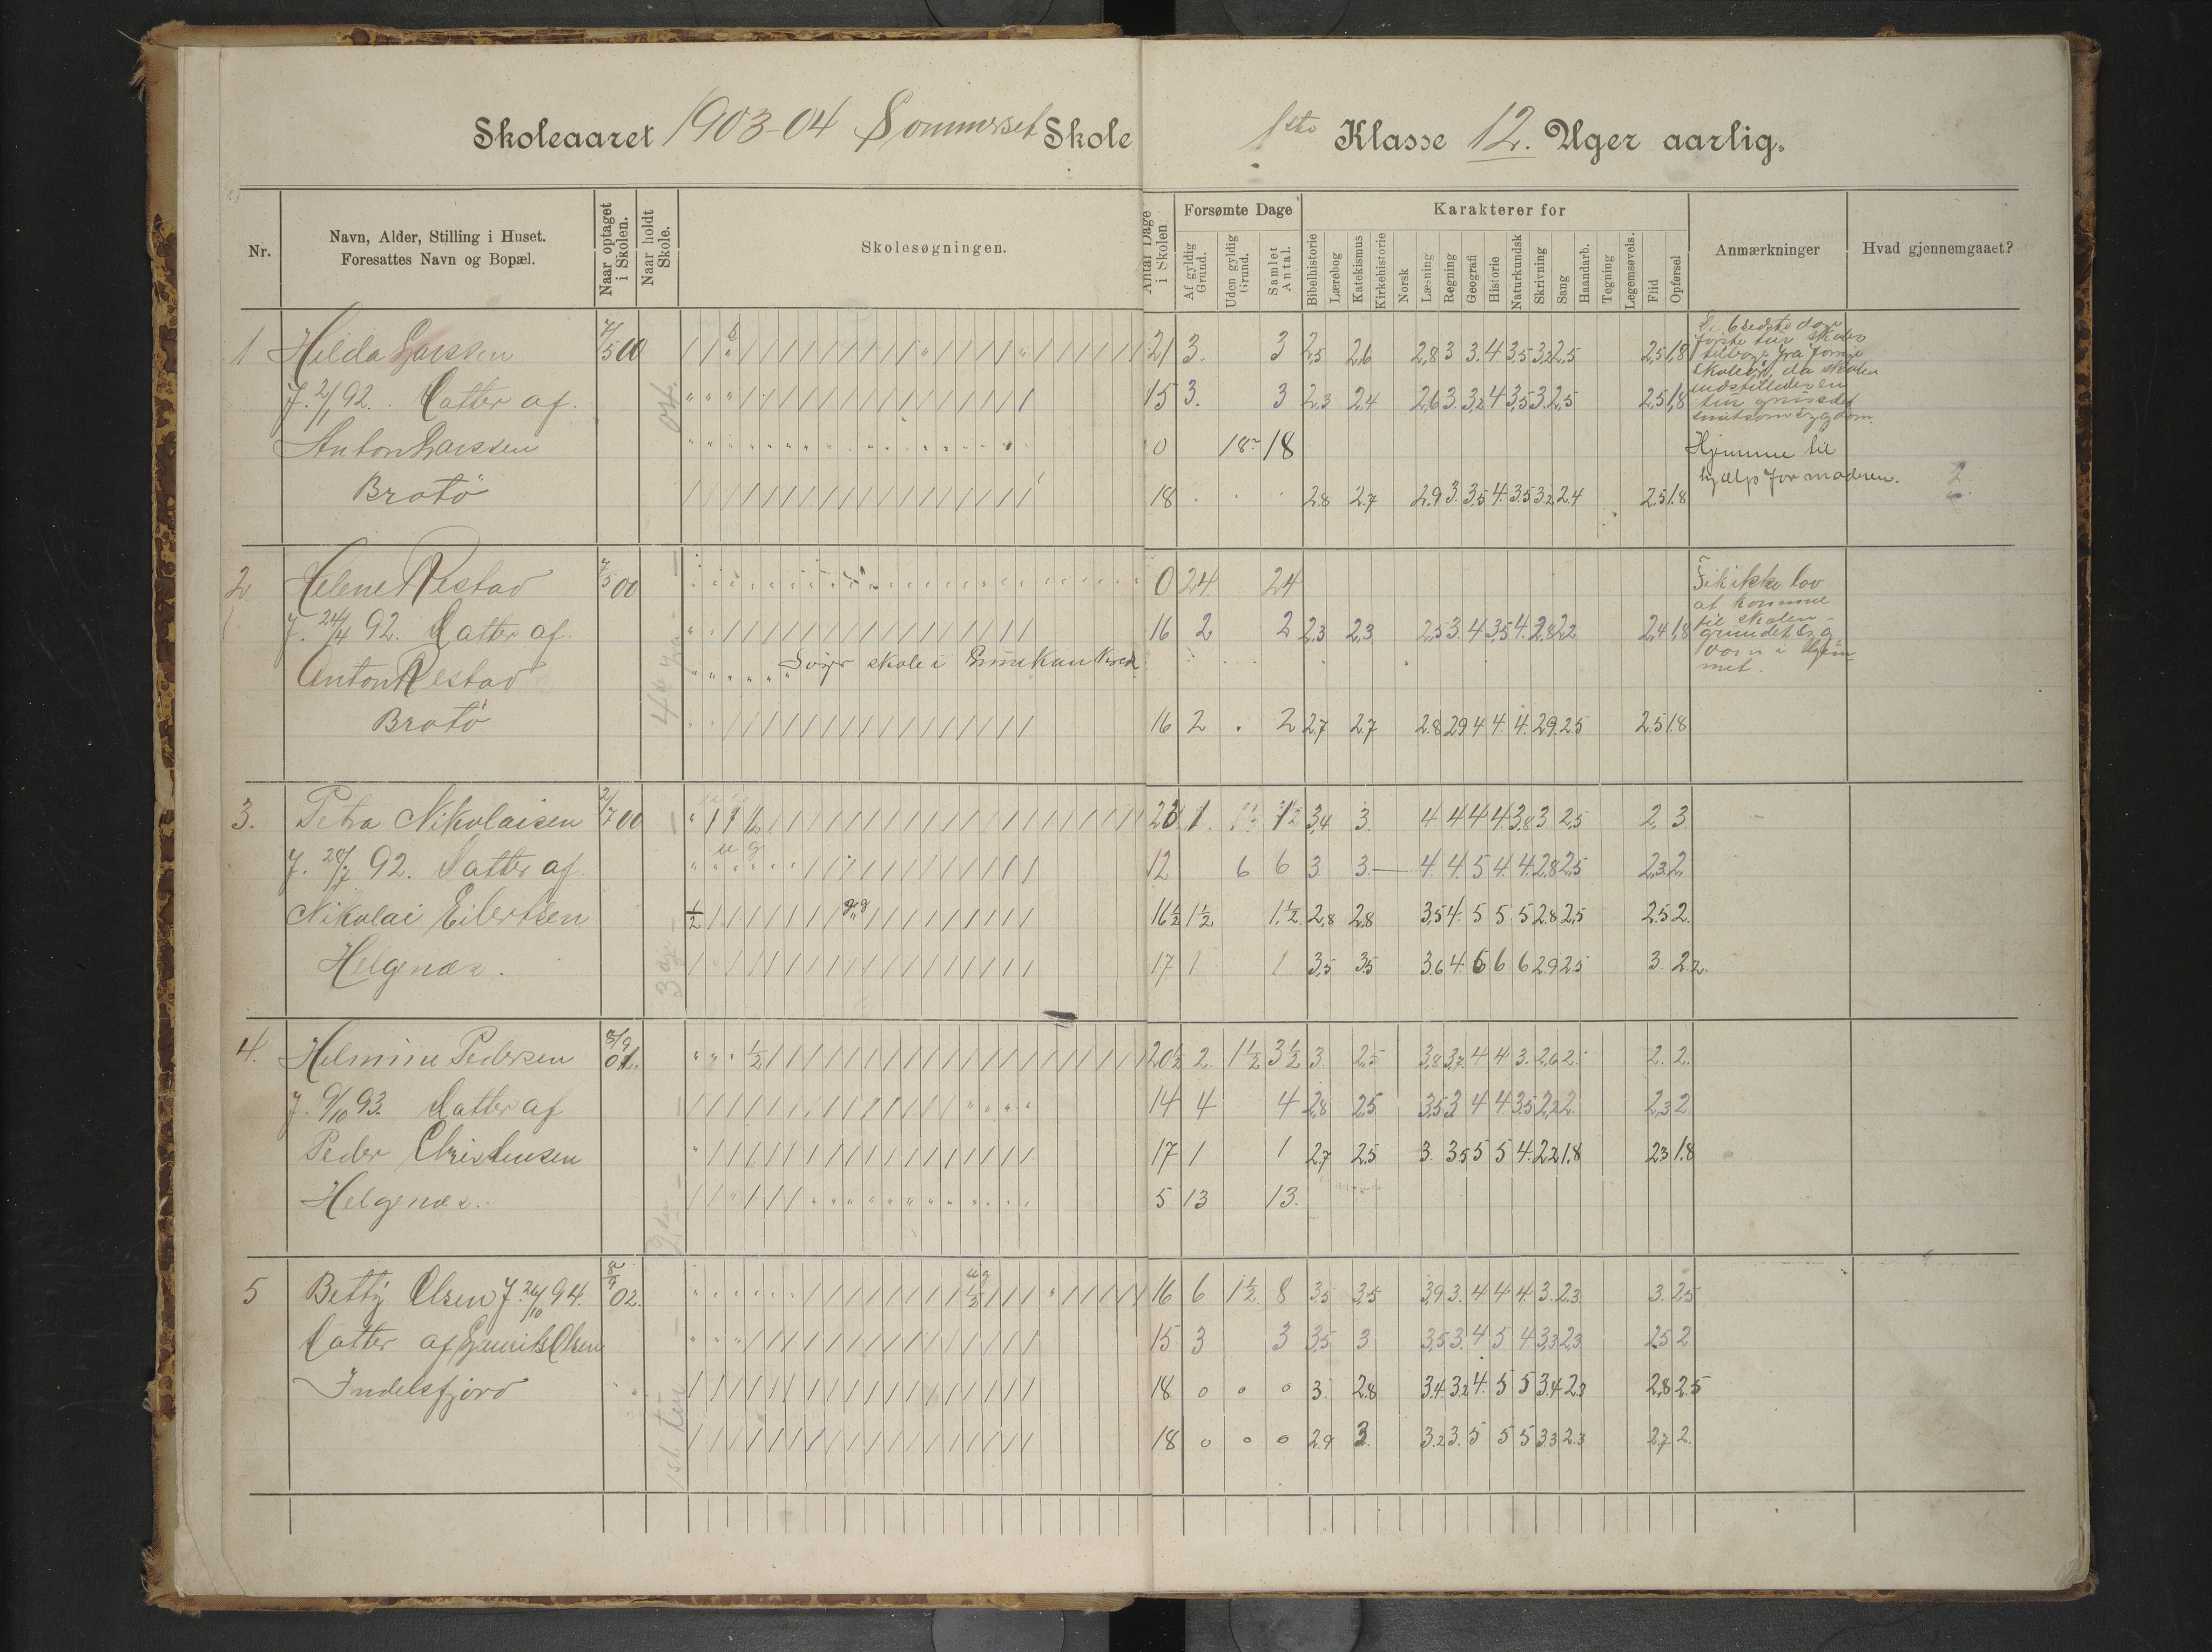 Skoleaaret 1903-04 Sommerset Skole
1ste Klasse 12. Uger aarlig.
Nr.
Navn, Alder, Stilling i Huset.
Foresattes Navn og Bopæl.
Naar optaget i Skolen.
Naar holdt Skole.
Skolesøgningen.
Antal Dage i Skolen
Forsømte Dage
Af gyldig Grund.
Uden gyldig Grund.
Samlet Antal.
Karakterer for
Bibelhistorie
Lærebog
Katekismus
Kirkehistorie
Norsk
Læsning
Regning
Geografi
Historie
Naturkundsk
Skrivning
Sang
Haandarb.
Tegning
Legemsøvels.
Flid
Opførsel
Anmærkninger
Hvad gjennemgaaet?
1 Hilda Larssen 7/5 00 21 3. 3 2,5 2,6 2,8 3 3. 4 3,5 3,2 2,5 2,5 1,8
f. 2/1 92. Datter af. 15 3. 3 2,3 2,4 2,6 3. 3,2 4 3,5 3. 2,5 2,5 1,8
Anton Larssen 0 18 18
Brotø 18 2.8 2.7 2.9 3. 3.5 4. 3.5 3.2 2.4 2.5 1.8
første tur skolen
tilbage fra forrige
skoleår, da skolen
indstilledes en
tur grundet
smitsom sygdom.
Hjemme til
hjælp for moderen.
2 Helene Restad 7/5 00 0 24. 24
f. 24/4 92. Datter af. 16 2 2 2,3 2,3 2,5 3. 4 3,5 4. 2,8 2,2 2,4 1,8
Anton Restad
Brotø 16 2 2 2.7 2.7 2.8 2.9 4 4. 4. 2.9. 2.5 2.5 1.8
Fik ikke lov
at komme
til skolen
grundet syg
dom i hjem-
met.
3. Petra Nikolaisen 2/7 00 1 3,4 3. 4 4 4 4. 3,8 3 2,5 2, 3.
f. 28/7 92. Datter af. 12 6 6 3 3. 4. 4. 5 4. 4. 2,8 2,5 2,3 2,
Nikolai Eilertsen 16 1/2 1 1/2 1 1/2 2,8 2,8 3,5 4. 5 5 5 2.8 2.5 2.5 2.
Helgenæs. 17 1 1 3,5 3,5 3.6 4. 6 6 6 2.9 2.5 3. 2.2.
4. Helmine Pedersen 20 1/2 2. 1 1/2 3 1/2 3. 2,5 3,8 3,7 4 4 3. 2,6 2. 2. 2.
f. 9/10 93. Datter af 14 4 4 2,8 2,5 3,5 3 4 4. 3,5 2,2 2 2,3 2
Peder Christensen 17 1 1 2,7 2,5 3. 3.5 5 5 4. 2.2 1.8 2.3 1.8
Helgenæs. 5 13 13.
5 Betty Olsen f. 24/10 94. 02. 16 6 1 1/2 8 3,5 3,5 3,9 3. 4. 4 4. 3. 2,3. 3. 2,5
Datter af Olsen 15 3 3 3,5 3 3,5 3. 4 5 4. 3,3 2,3 2,5 2
Indelsfjord 18 0 0 0 3. 2.8 3.4. 3.2 4. 5 5 3.4 2.3 2.8 2.5
18 0 0 0 2.9 3. 3.2 3. 5 5 5 3.3 2.3 2.7 2.